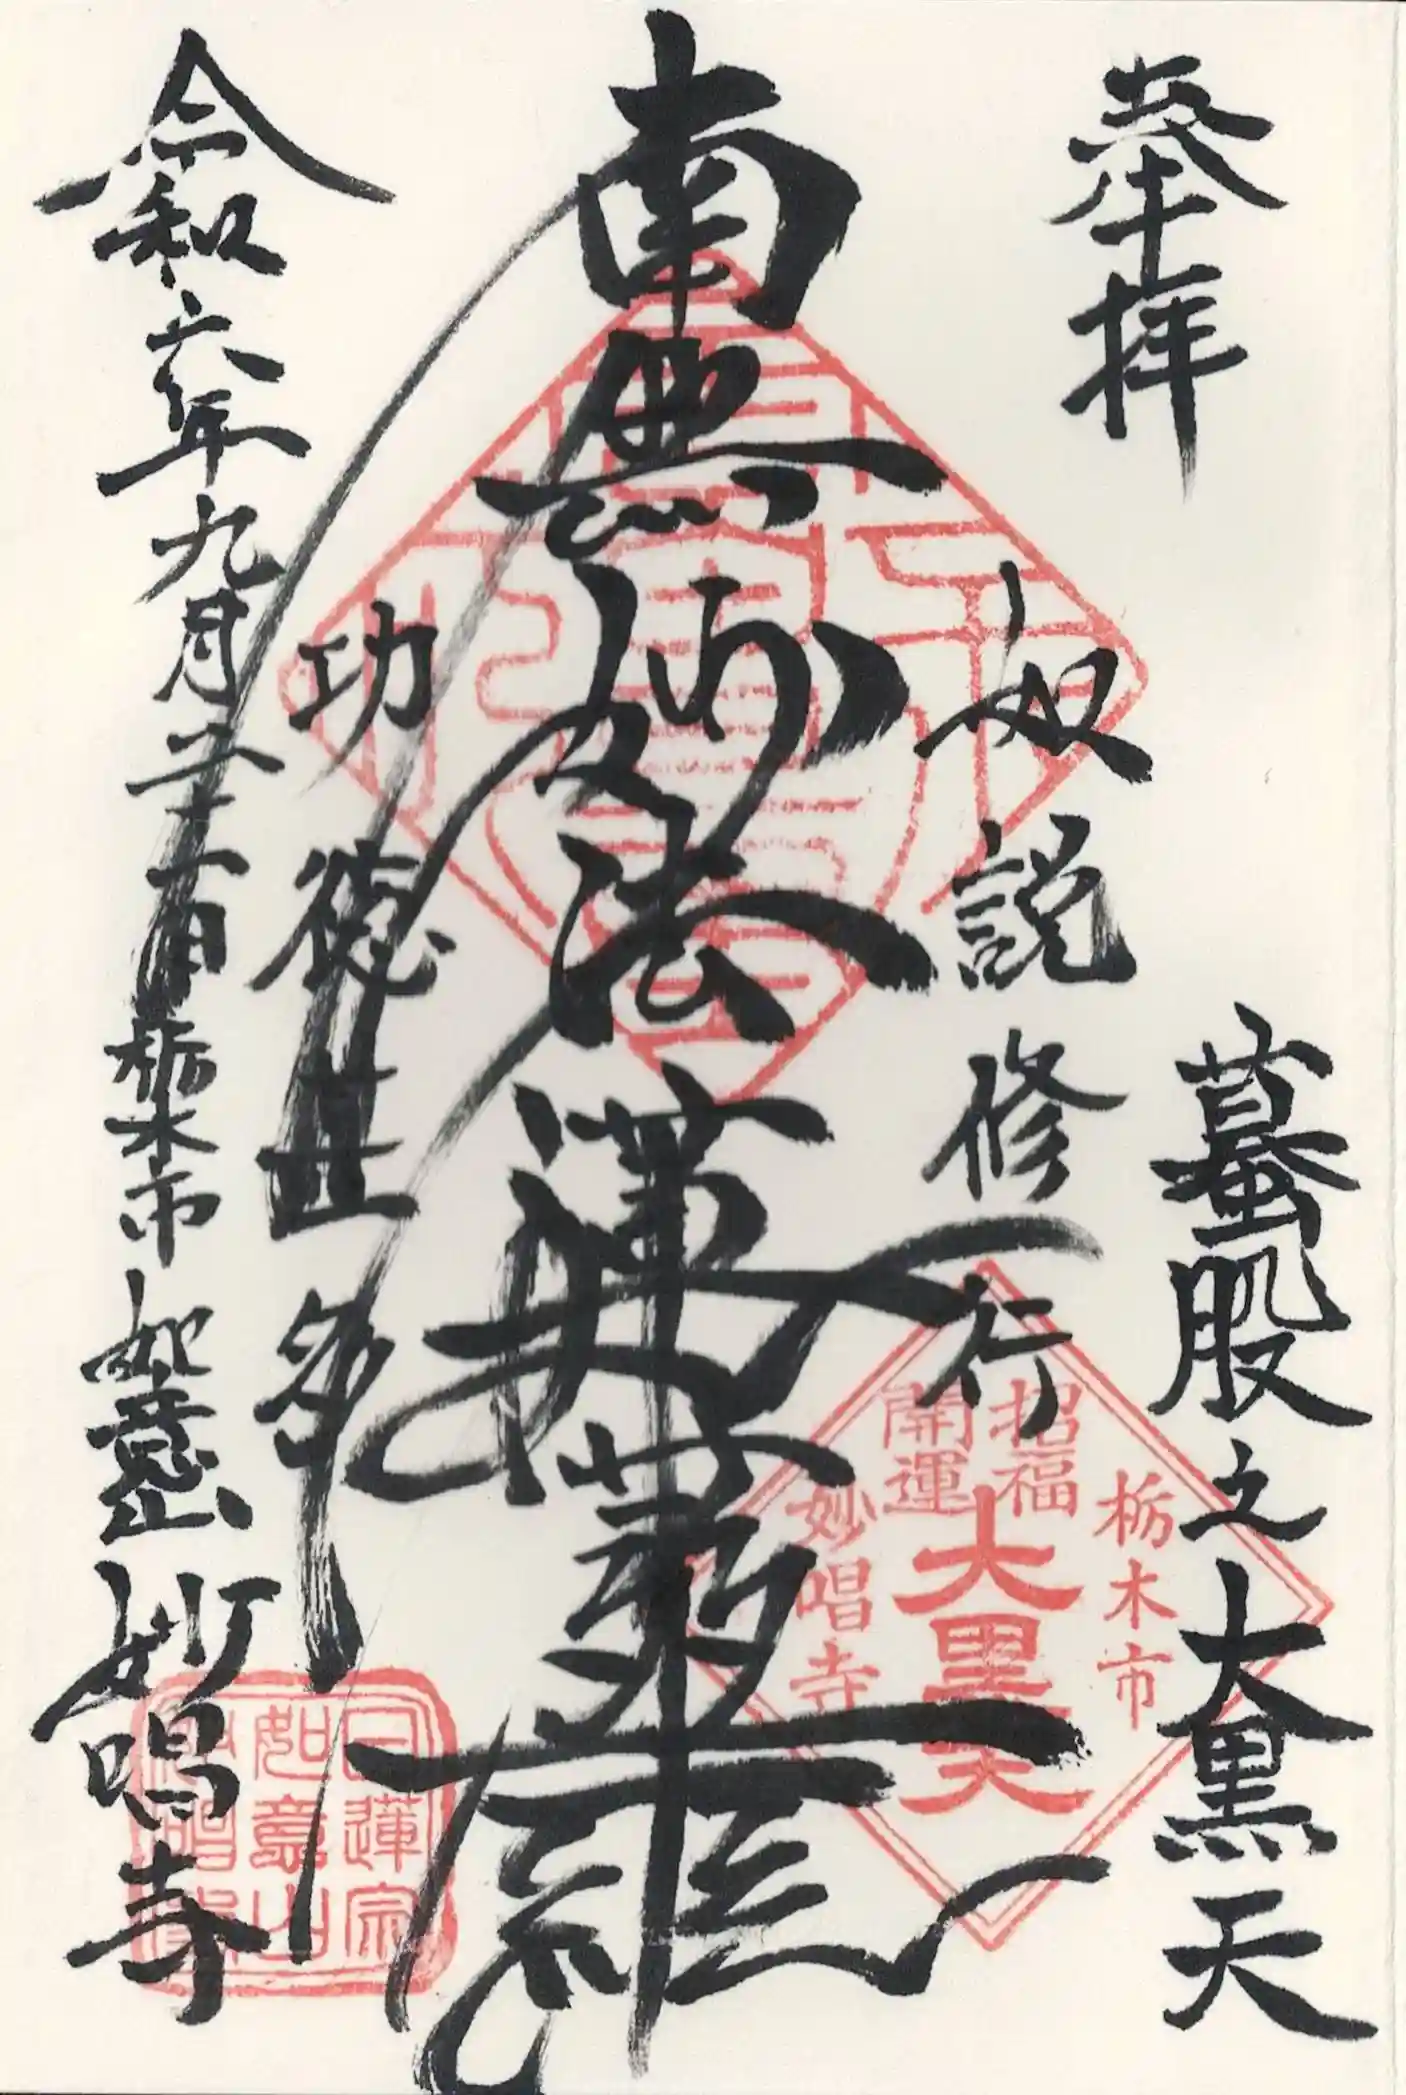 奉拝
蟇股之大黒天
如説修行
南無妙法蓮華経
功徳甚多
令和六年九月二十一日
栃木市
如意山
妙唱寺
栃木市
招福
開運
大黒天
妙唱寺
日蓮宗
如意山
妙唱寺